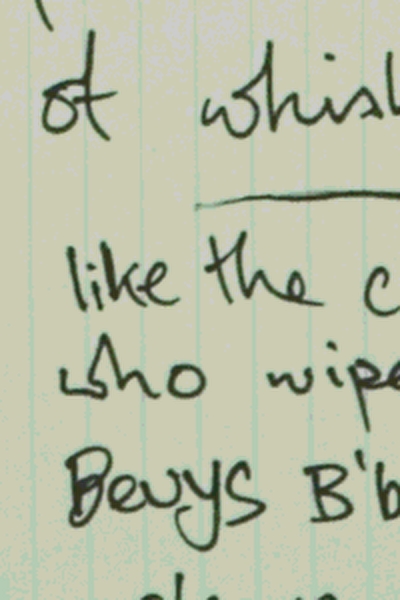 of whisk
like the c
who wipe
Bevys B'b